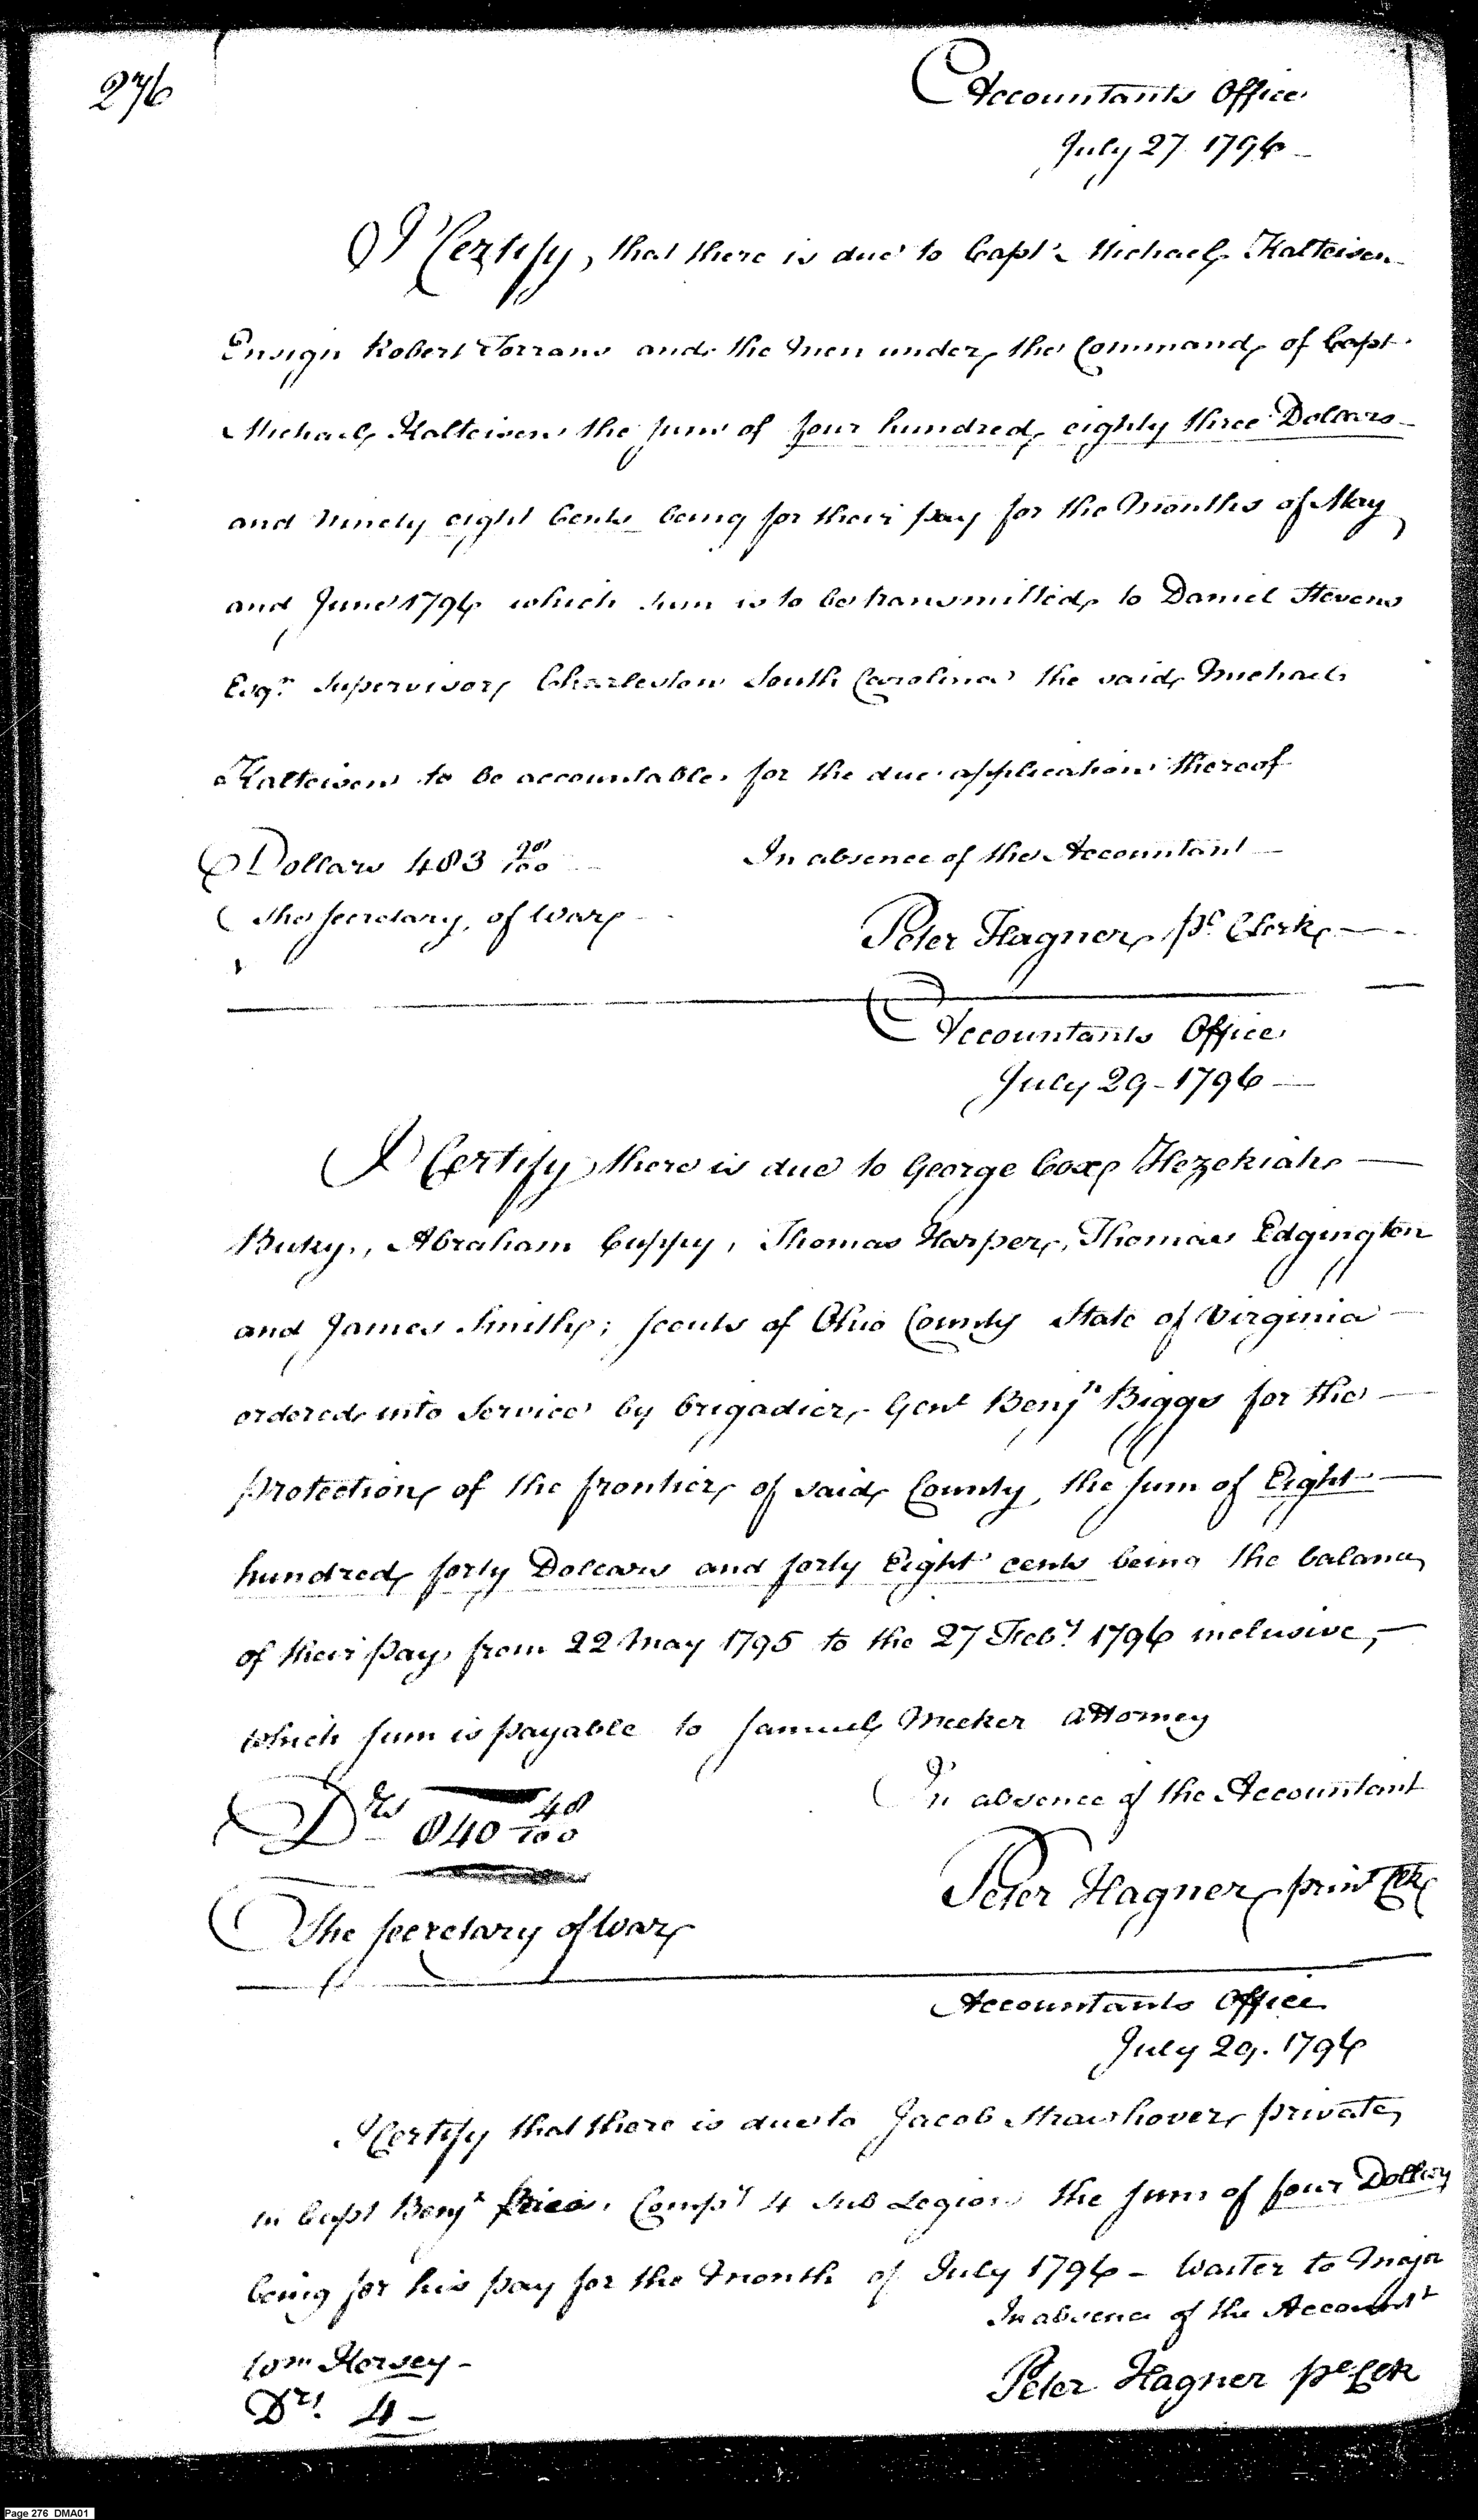 276
Accountants Office
July 27 1796
I Certify, that there is due to Capt. Michael Kalteisen
Ensign Robert Torrans and the men under the Command of Capt.
Michael Kalteisen the sum of four hundred eighty three Dollars
and ninety eight Cents being for their pay for the months of May
and June 1796 which sum is to be transmitted to Daniel Stevens
Esqr. Supervisor Charleston South Carolina the said Michael
Kalteisen to be accountable for the due application thereof
Dollars 483 98/100
In absence of the Accountant
The Secretary of War
Peter Hagner, pl. Clerk
Accountants Office
July 29 - 1796
I Certify there is due to George Cox Hezekiah
Abraham Cuppy, Thomas Harper, Thomas Edgington
and James Smith; scouts of Ohio County State of Virginia
ordered into service by brigadier Genl Benjn Biggs for the
protection of the frontier of said County, the sum of Eight
hundred forty Dollars and forty Eight cents being the balance
of their pay from 22 May 1795 to the 27 Feby. 1796 inclusive,
which sum is payable to Samuel Meeker Attorney
In absence of the Accountant
Drs 840 48/100
Peter Hagner prinl Clk
The Secretary of War
Accountants Office
July 29. 1796
I Certify that there is due to Jacob Strawhover private
in Capt Benjn Prices Compy 4 Sub Legion the sum of four Dollars
being for his pay for the month of July 1796 - Waiter to Major
In absence of the Accountt
Wm Hersey -
Peter Hagner pl Clk
Drs. 4 -
Page 276 DMA01